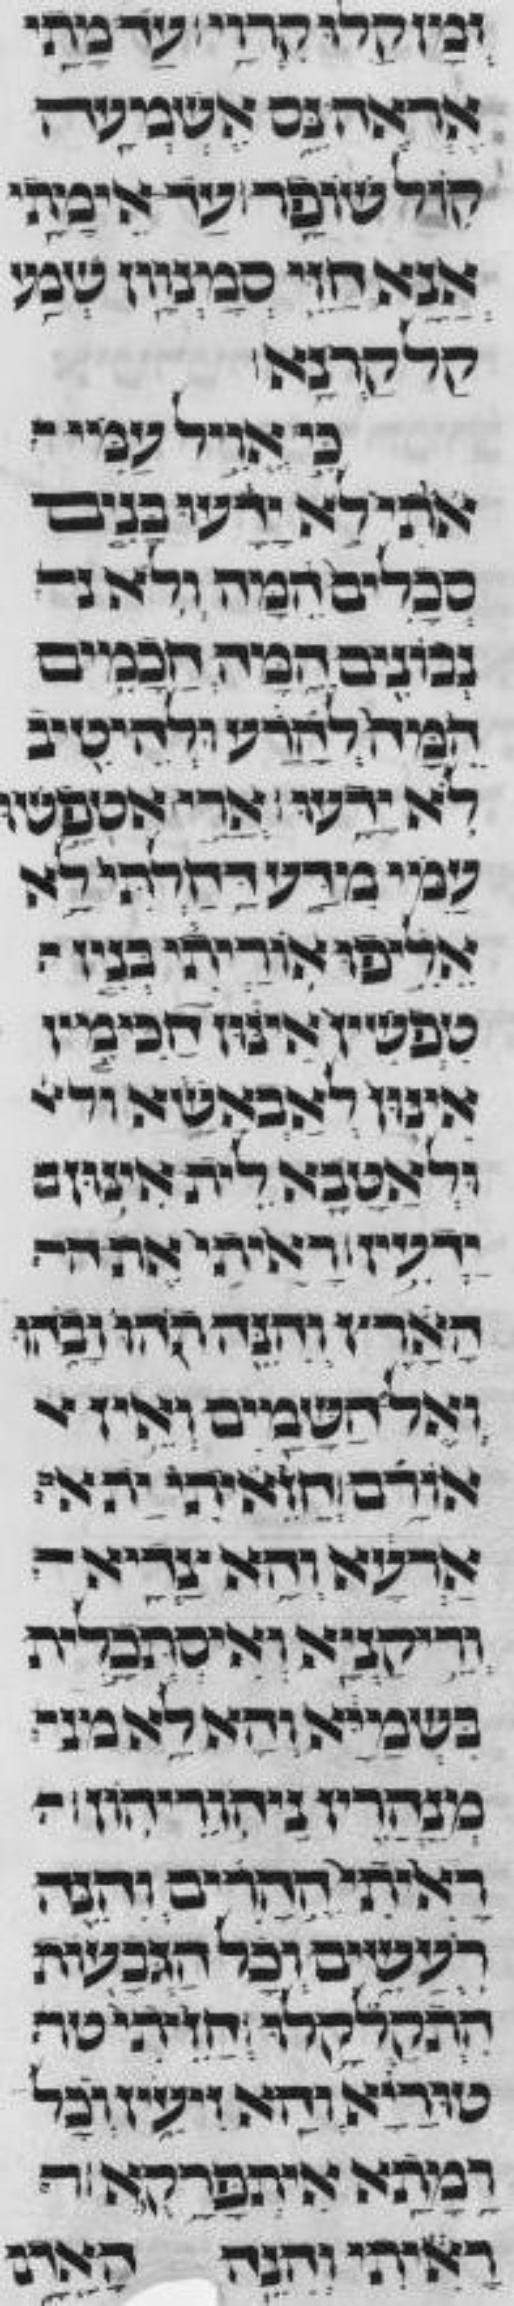 וּמִן קַלוּ קִרְוַי עַד מָתַי
אֶרְאֶה נֵּס אֶשְׁמְעָה
קוֹל שׁוֹפָר עַד אֵימָתַי
אֲנָא חָזֵי סָמְכְוָון שְׁמַע
קַל קַרְנָא
כִּי אֱוִיל עַמִּי
אֹתִי לֹא יָדָעוּ בָּנִים
סְכָלִים הֵמָּה וְלֹא נ
נְבוֹנִים הֵמָּה חֲכָמִים
הֵמָּה לְהָרַע וּלְהֵיטִיב
לֹא יָדָעוּ אֲרֵי אִטַפָּשׁוּ
עַמִּי מִדַּע דַּחַלְתִּי לָא
אֲלִיפוּ אוֹרָיְתִי בְּנִין
טַפְשִׁין אִינּוּן חַכִּימִין
אִינּוּן לְאַבְאָשָׁא ול
וּלְאַטָבָא לֵית אִינוּן
יָדְעִין רָאִיתִי אֶת ה
הָאָרֶץ וְהִנֵּה תֹהוּ וָבֹהוּ
וְאֶל הַשָּׁמַיִם וְאֵין
אוֹרָם חֲזֵאיתִי יָת א
אַרְעָא וְהָא צַדְיָא
וְרֵיקָנְיָא וְאִיסְתַּכָּלִית
בִּשְׁמַיָּא וְהָא לָא מנ
מְנַהֲרִין נֵיהוֹרֵיהוֹן
רָאִיתִי הֶהָרִים וְהִנֵּה
רֹעֲשִׁים וְכָל הַגְּבָעוֹת
הִתְקַלְקָלוּ חֲזֵיתִי טו
טוּרַיָּא וְהָא זָיְעִין וְכָל
רָמָתָא אִיתְפָּרָקָא ר
רָאִיתִי וְהִנֵּה הָאָדָם